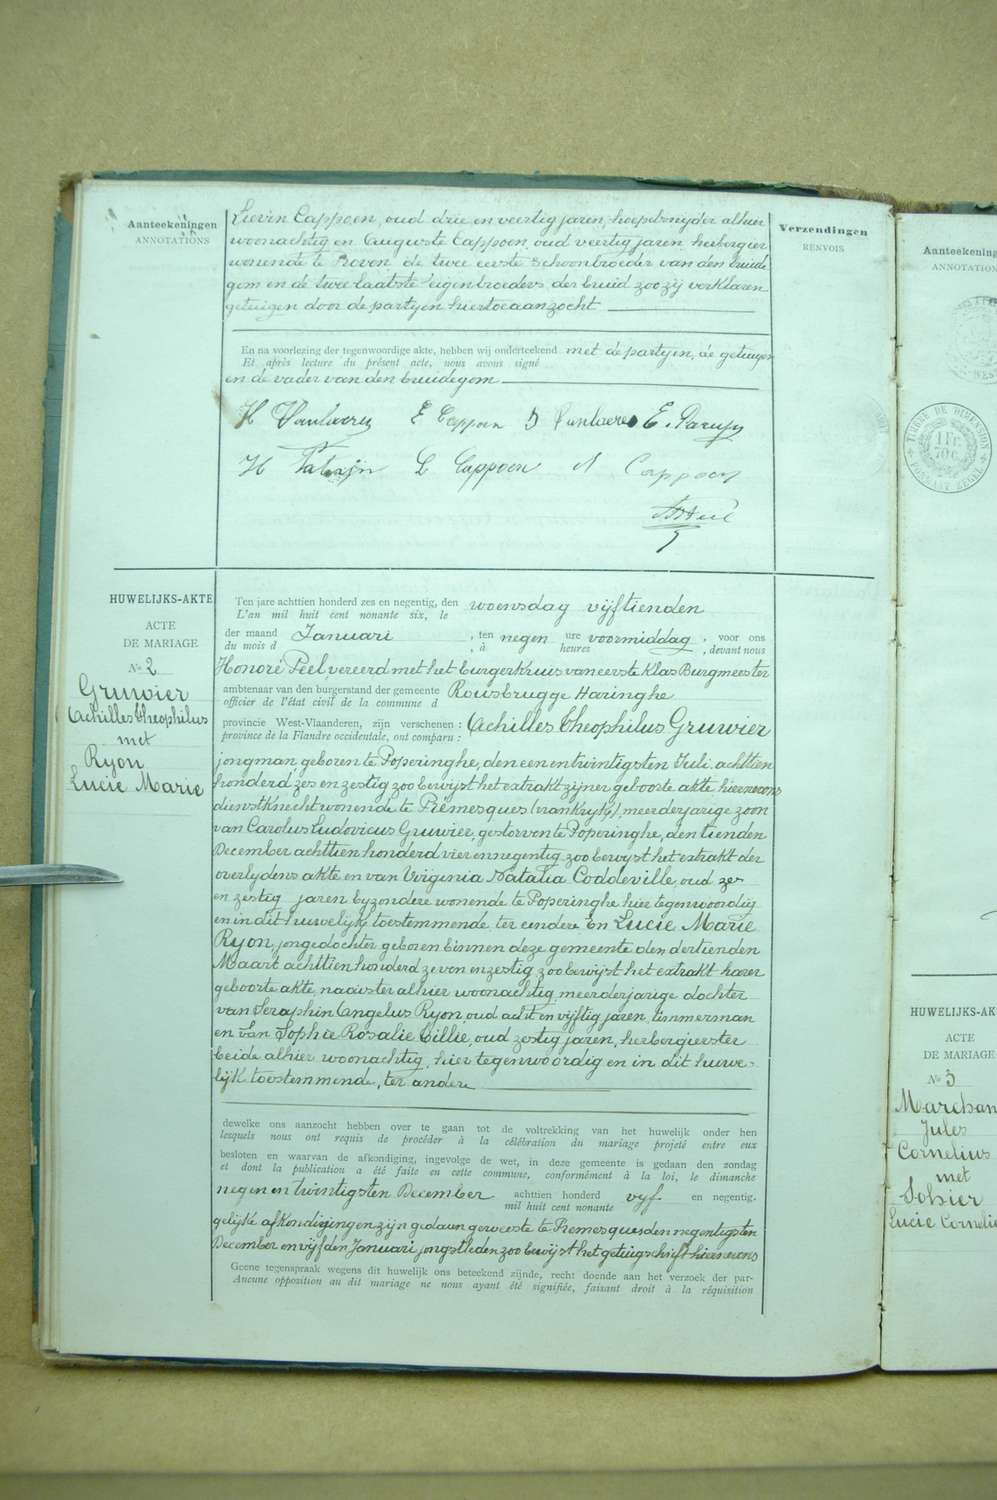 Aanteekeningen
ANNOTATIONS
Lievin Cappoen, oud drie en veertig jaren, hoepelsnyder alhier
woonachtig en Auguste Cappoen, oud veertig jaren, herbergier
wonende te Proven de twee eerste schoonbroeder van den bruide
gom en de twee laatste eigen broeders der bruid zoo zij verklaren
getuigen door de partyen hiertoe aanzocht
Verzendingen
RENVOIS
En na voorlezing der tegenwoordige akte, hebben wij onderteekend met de partyen, de getuigen
Et après lecture du présent acte, nous avons signé
en de vader van den bruidegom
H Vanlaeren E Cappoen D Vanlaeren E. Parufy
H L Cappoen A Cappoen
HUWELIJKS-AKTE
ACTE
DE MARIAGE
No 2
Gruwier
Achilles Theophilus
met
Ryon
Lucie Marie
Ten jare achttien honderd zes en negentig, den woensdag vijftienden
L'an mil huit cent nonante six, le
der maand Januari, ten negen ure voormiddag, voor ons
du mois d , à heures , devant nous
Honoré Peel vereerd met het burgerkruis van eerste klas Burgmeester
ambtenaar van den burgerstand der gemeente Rousbrugge Haringhe
officier de l'état civil de la commune d
provincie West-Vlaanderen, zijn verschenen : Achilles Theophilus Gruwier
province de la Flandre occidentale, ont comparu :
jongman, geboren te Poperinghe, den een en twintigsten Juli achttien
honderd zes en zestig zoo bewijst het extrakt zijner geboorte akte hiernevens
dienstknecht wonende te Prémesques (Frankryk), meerderjarige zoon
van Carolus Ludovicus Gruwier, gestorven te Poperinghe, den tienden
December achttien honderd vier en negentig zoo bewyst het extrakt der
overlydens akte en van Virginia Natalia Coddeville, oud zes
en zestig jaren byzondere wonende te Poperinghe hier tegenwoordig
en in dit huwelijk toestemmende, ter eendere En Lucie Marie
Ryon, jongedochter geboren binnen deze gemeente den dertienden
Maart achttien honderd zeven en zestig, zoo bewijst het extrakt harer
geboorte akte, naaister alhier woonachtig, meerderjarige dochter
van Seraphin Angelus Ryon, oud acht en vijftig jaren, timmerman
en van Sophie Rosalie Lillie, oud zestig jaren, herbergierster
beide alhier woonachtig, hier tegenwoordig en in dit huwe-
lijk toestemmende, ter andere
dewelke ons aanzocht hebben over te gaan tot de voltrekking van het huwelijk onder hen
lesquels nous ont requis de procéder à la célébration du mariage projeté entre eux
besloten en waarvan de afkondiging, ingevolge de wet, in deze gemeente is gedaan den zondag
et dont la publication a été faite en cette commune, conformément à la loi, le dimanche
negen en twintigsten December achttien honderd vyf en negentig.
mil huit cent nonante
gelijke afkondigingen zijn gedaan geweest te Premesques den negentigsten
December en vijfden Januari jongstleden zoo bewijst het getuigschrift hiernevens
Geene tegenspraak wegens dit huwelijk ons beteekend zijnde, recht doende aan het verzoek der par-
Aucune opposition au dit mariage ne nous ayant été signifiée, faisant droit à la réquisition
Aanteekening
ANNOTATIONS
TIMBRE DE DIMENSION
1 Fr.
70 c.
HUWELIJKS-AK
ACTE
DE MARIAGE
No 3
Marchan
Jules
Cornelius
met
Sohier
Lucie Cornelie